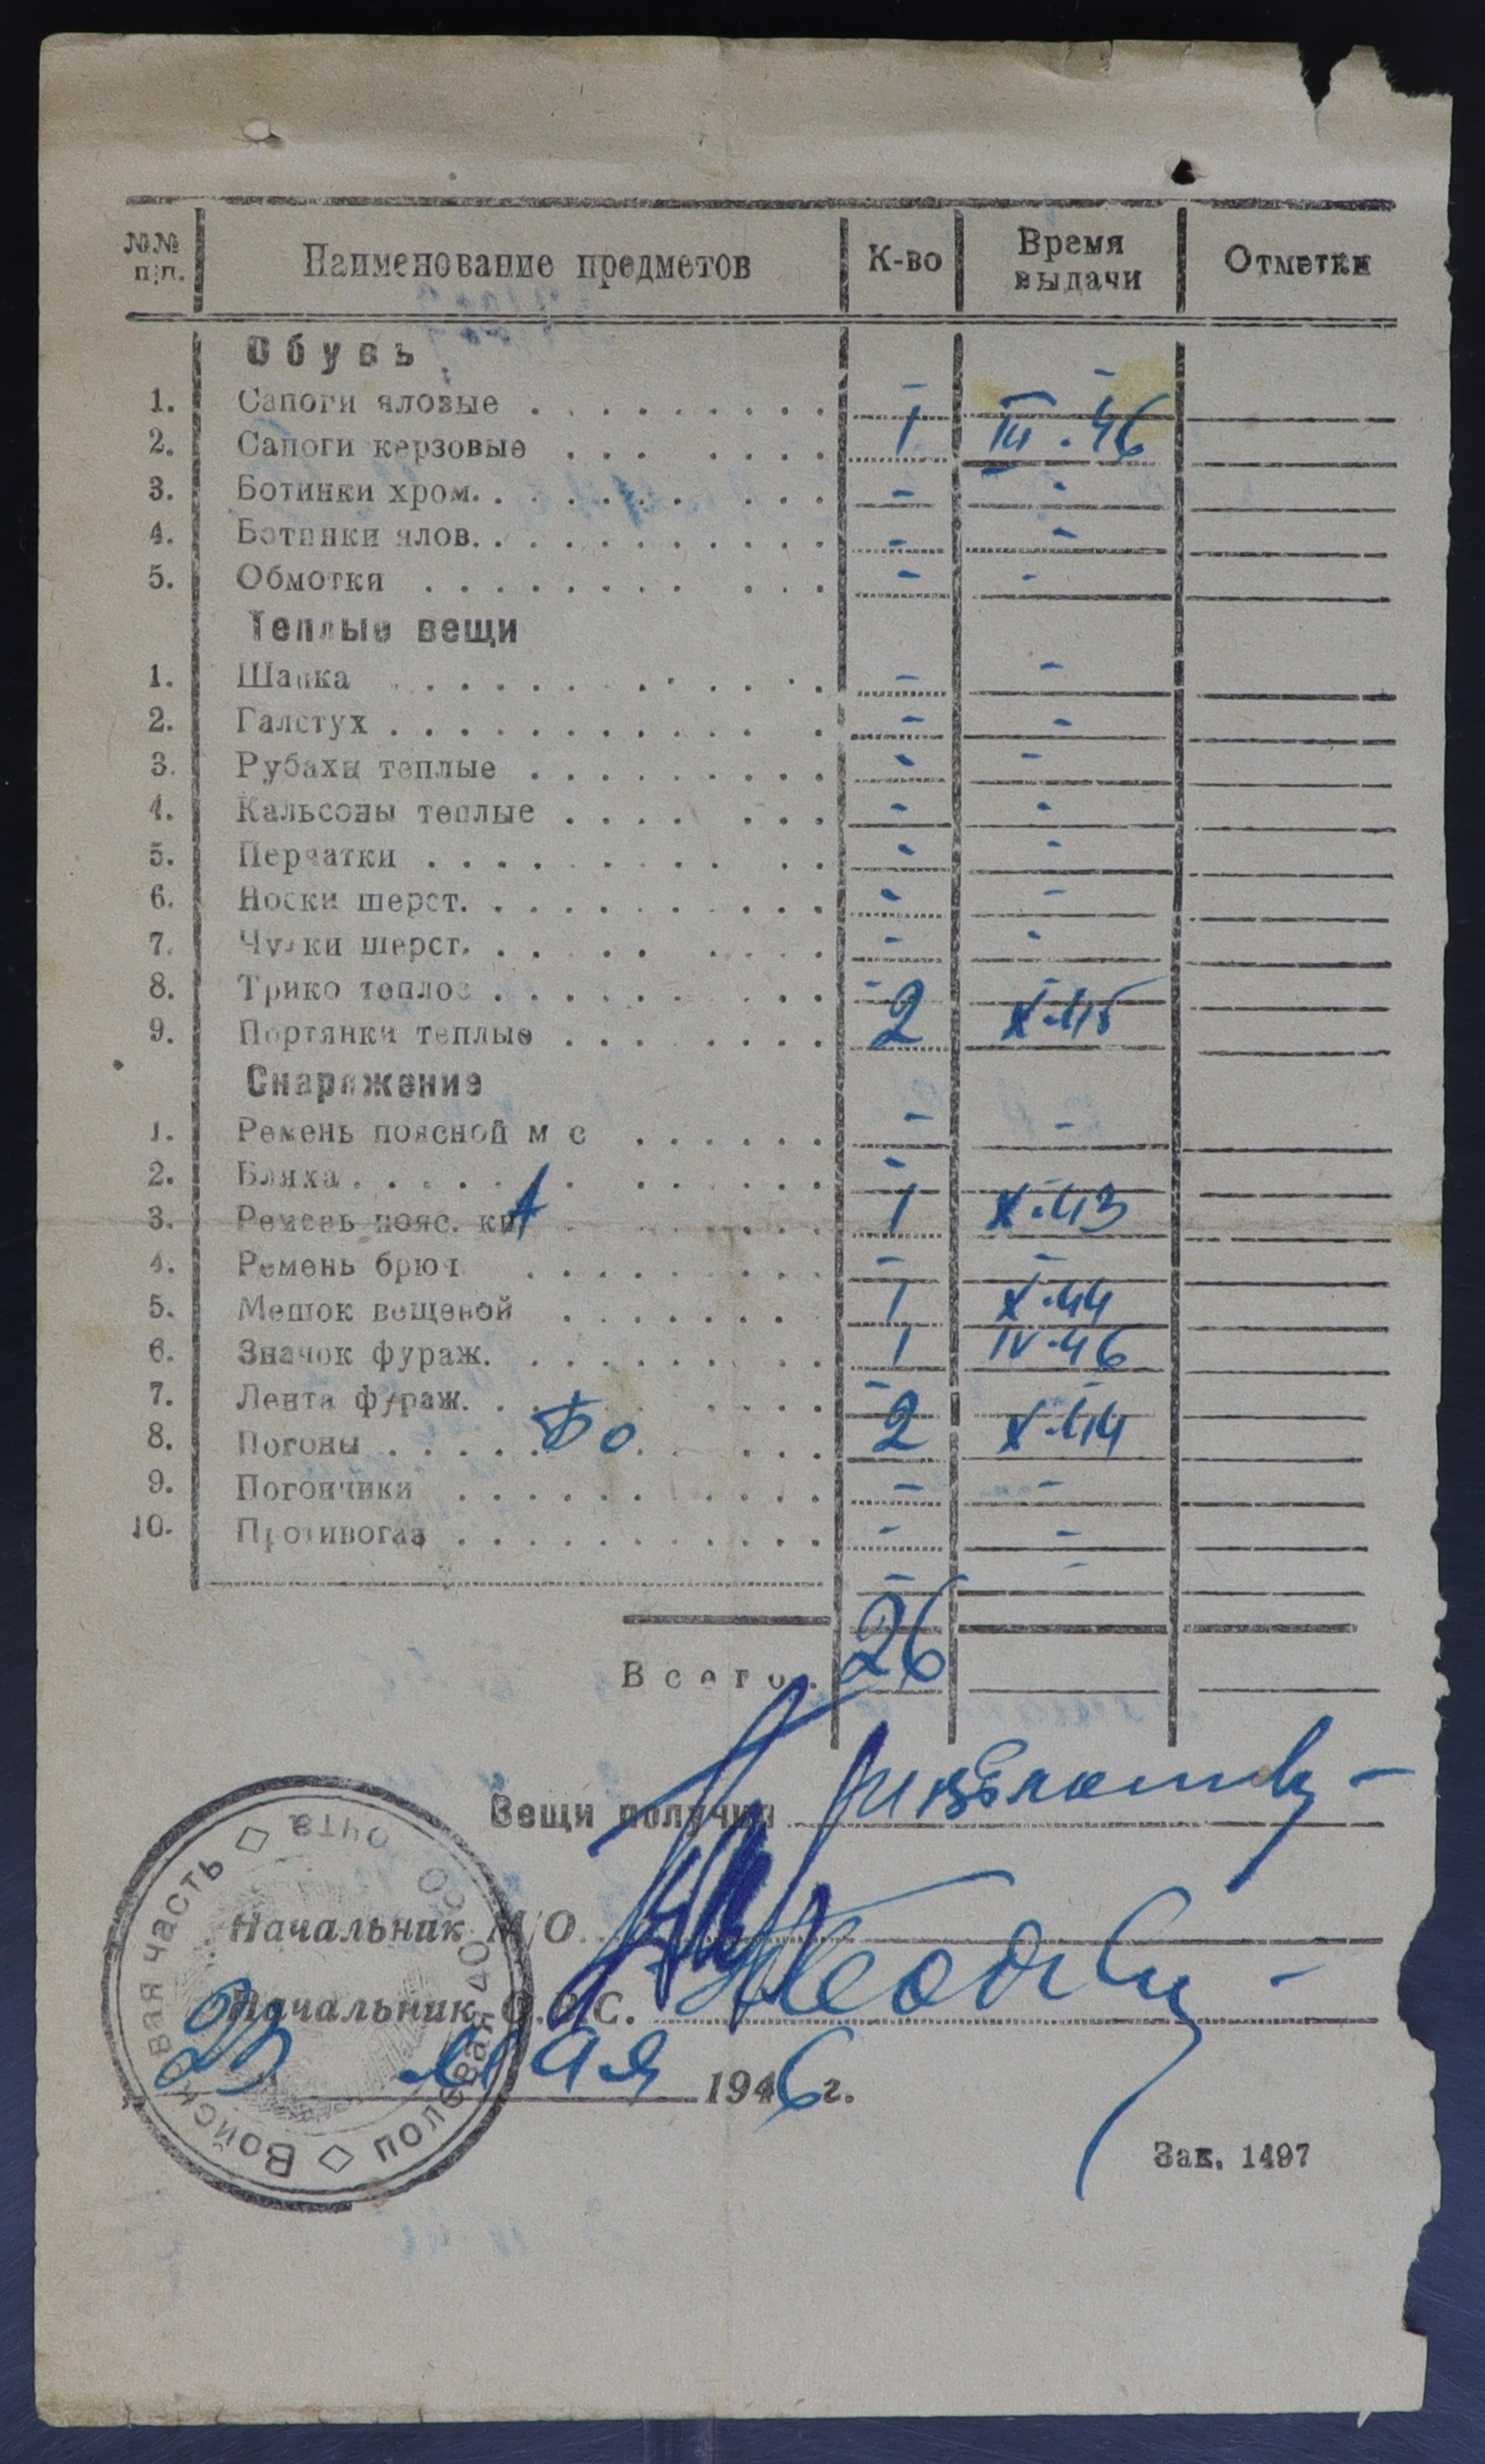 №№ п/п. Наименование предметов К-во Время выдачи Отметки
Обувь
1. Сапоги яловые - -
2. Сапоги керзовые 1 III-46
3. Ботинки хром. - -
4. Ботинки ялов. - -
5. Обмотки - -
Теплые вещи
1. Шапка - -
2. Галстух - -
3. Рубахи теплые - -
4. Кальсоны теплые - -
5. Перчатки - -
6. Носки шерст. - -
7. Чулки шерст. - -
8. Трико теплое - -
9. Портянки теплые 2 X-45
Снаряжение
1. Ремень поясной м с - -
2. Бляха - -
3. Ремень пояс. 1 X-43
4. Ремень брюч - -
5. Мешок вещевой 1 X-44
6. Значок фураж. 1 IV-46
7. Лента фураж. - -
8. Погоны 2 X-44
9. Погончики - -
10. Противогаз - -
- -
Всего. 26
Вещи получил
Начальник М/О.
Начальник О.В.С.
23 мая 1946 г.
Войсковая часть ◇ полевая почта
Зак. 1497